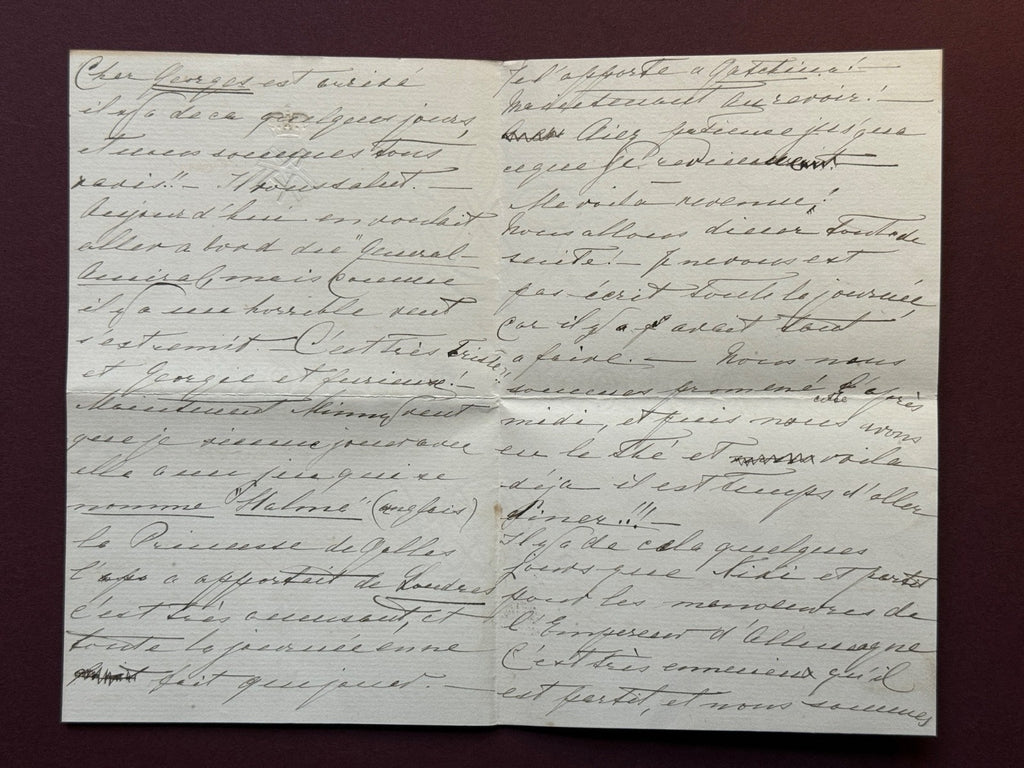 Cher Georges est arivé
il y'a de ca quelques jours,
et nous sommes tous
ravis!! — Il vous salut. —
Aujourd'hui en voulait
aller a bord du "General-
Amiral, mais comme
il y'a un horrible vent
s'est remit. — C'est très triste!!
et Georgie et furieux! —
Maintenant Minny veut
que je vienne jouer avec
elle a un jeu qui se
nomme "Halma" (anglais)
la Princesse de Galles
l'a apportait de Londres
c'est très amusant, et
toute la journée en ne
fait que jouer. —
Je l'apporte a Gatchina! —
Maintenant au revoir! —
Aiez patience jusqu'a
ce que je revienne
Me voila revenue!
Nous allons diner tout de
suite! — Je ne vous est
pas écrit toute la journée,
car il y'a avait tant
a faire. — Nous nous
sommes promené cette après
midi, et puis nous avons
eu le thé et voila
déja il est temps d'aller
diner!!! —
Il y'a de cela quelques
jours que Niki et partit
pour les manoeuvres de
l'Empereur d'Allemagne
C'est très ennuieux qu'il
est partit, et nous sommes